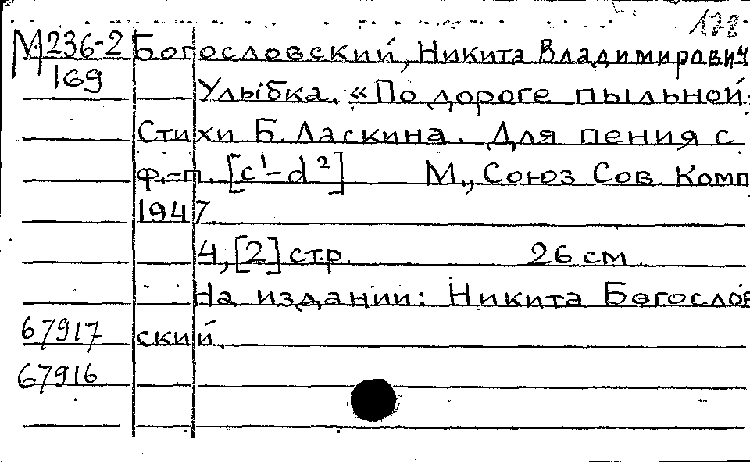 178
М236-2 Богословский, Никита Владимирович
169 Улыбка. «По дороге пыльной:
Стихи Б. Ласкина. Для пения с
ф.-п. [c¹-d²] М., Союз Сов Комп
1947
4, [2] стр. 26 см
На издании: Никита Богослов
67917 ский.
67916